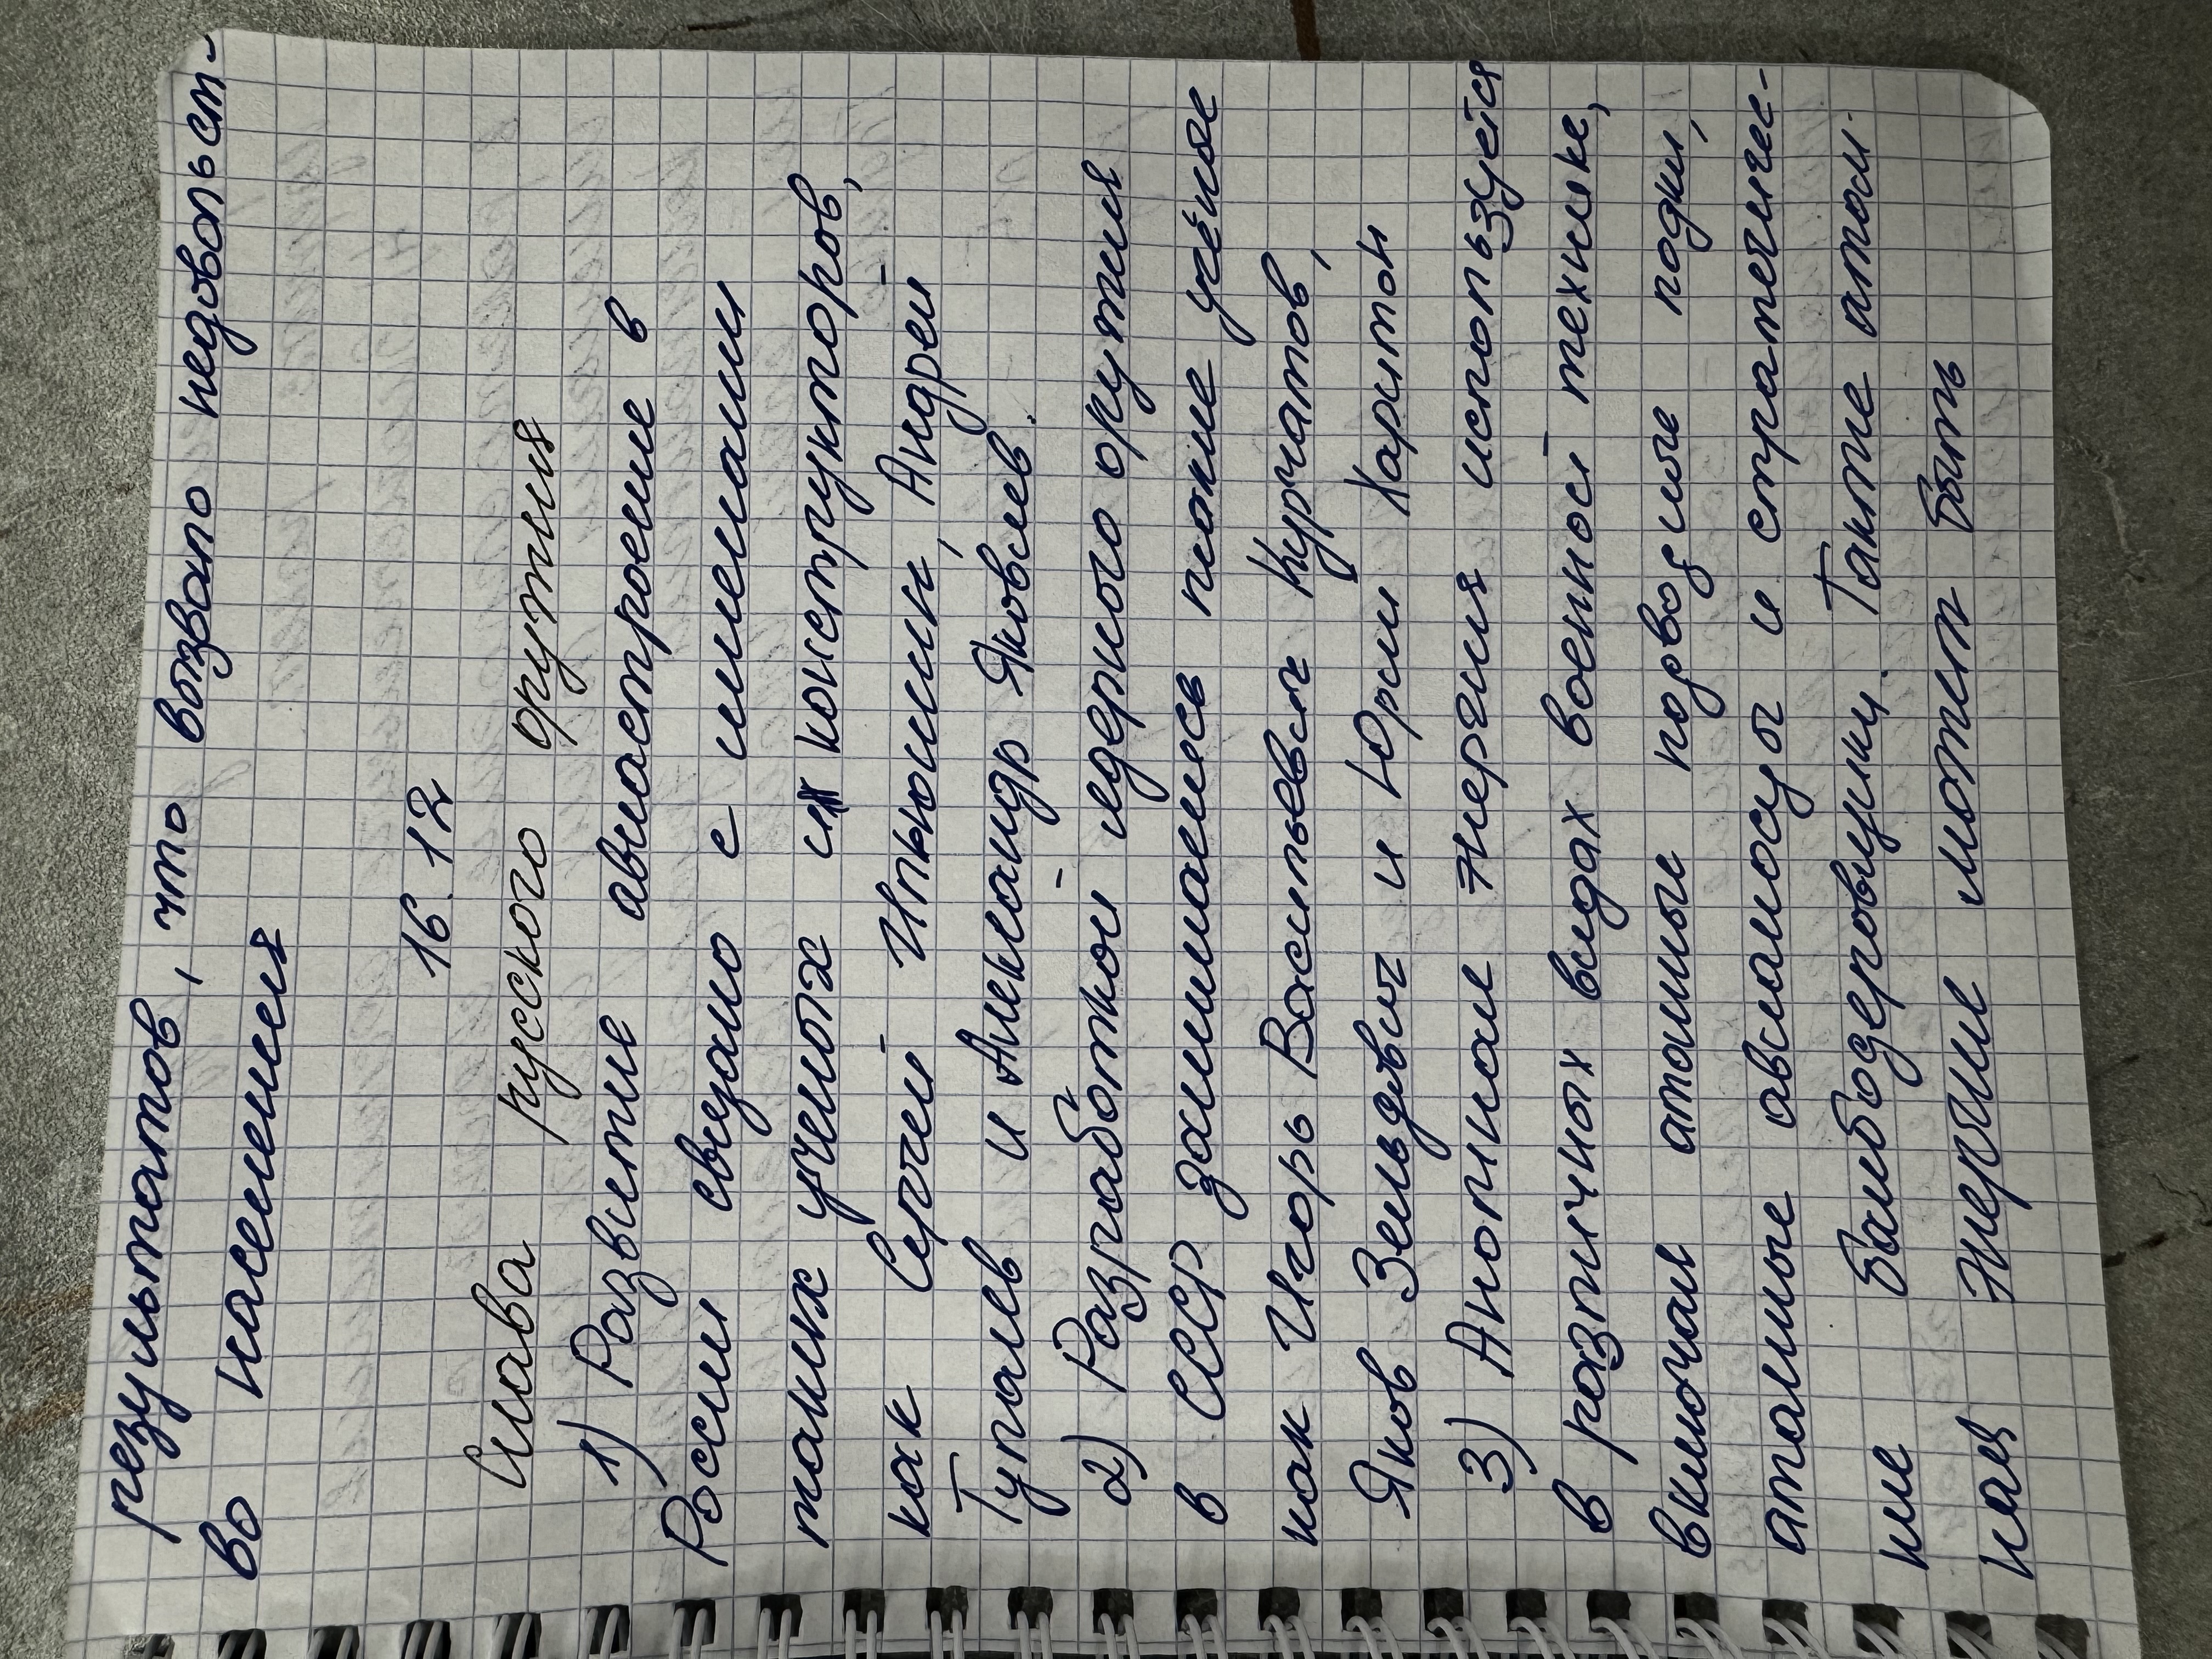 результатов, что возвало недовольст-
во населения
16.12
Слава русского оружия
1) Развитие авиастроение в
Росси свизано с именами
таких учёных и конструкторов,
как Сергей Ильюшин, Андрей
Туполев и Александр Яковлев.
2) Разработкой ядерного оружия
в СССР занимались такие учёные
как Игорь Васильевич Курчатов,
Яков Зельдвич и Юрии Харитон
3) Анотиная энергия используется
в различных видах военной технике,
включая атомные подводные лодки,
атомные авианосуы и стратегичес-
кие бамбодеровщики. Также атом-
ная энергии может быть